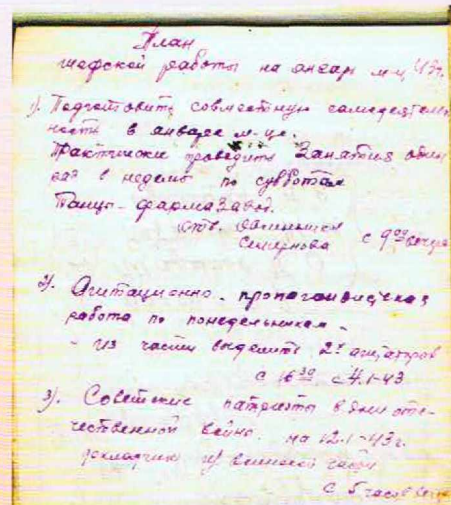 План
шефской работы на январь м-ц 43г.
1). Подготовить совместную самодеятель
ность в январе м-це.
Практически проводить занятия один
раз в неделю по субботам
Танцы - фармазавод.
отв.
Смирнова с 9 00 вечера
2). Агитационно - пропагандистская
работа по понедельникам -
- из части выделить 2х агитаторов
с 16 30 с 4.1-43
3). Советские патриоты в дни оте-
чественной войны. на 12.1-43г.
докладчик из воинской части
с 5 часов вечера